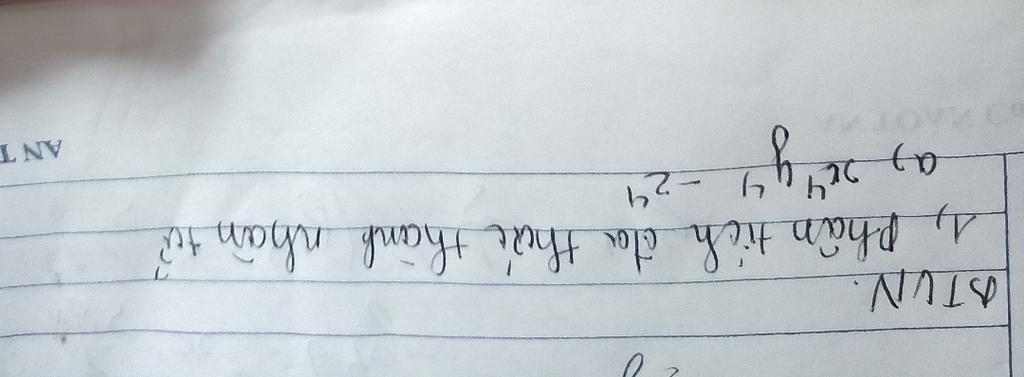 BTVN.
1, Phân tích đa thức thành nhân tử
a, x⁴y⁴ - z⁴
AN T
AN TOAN